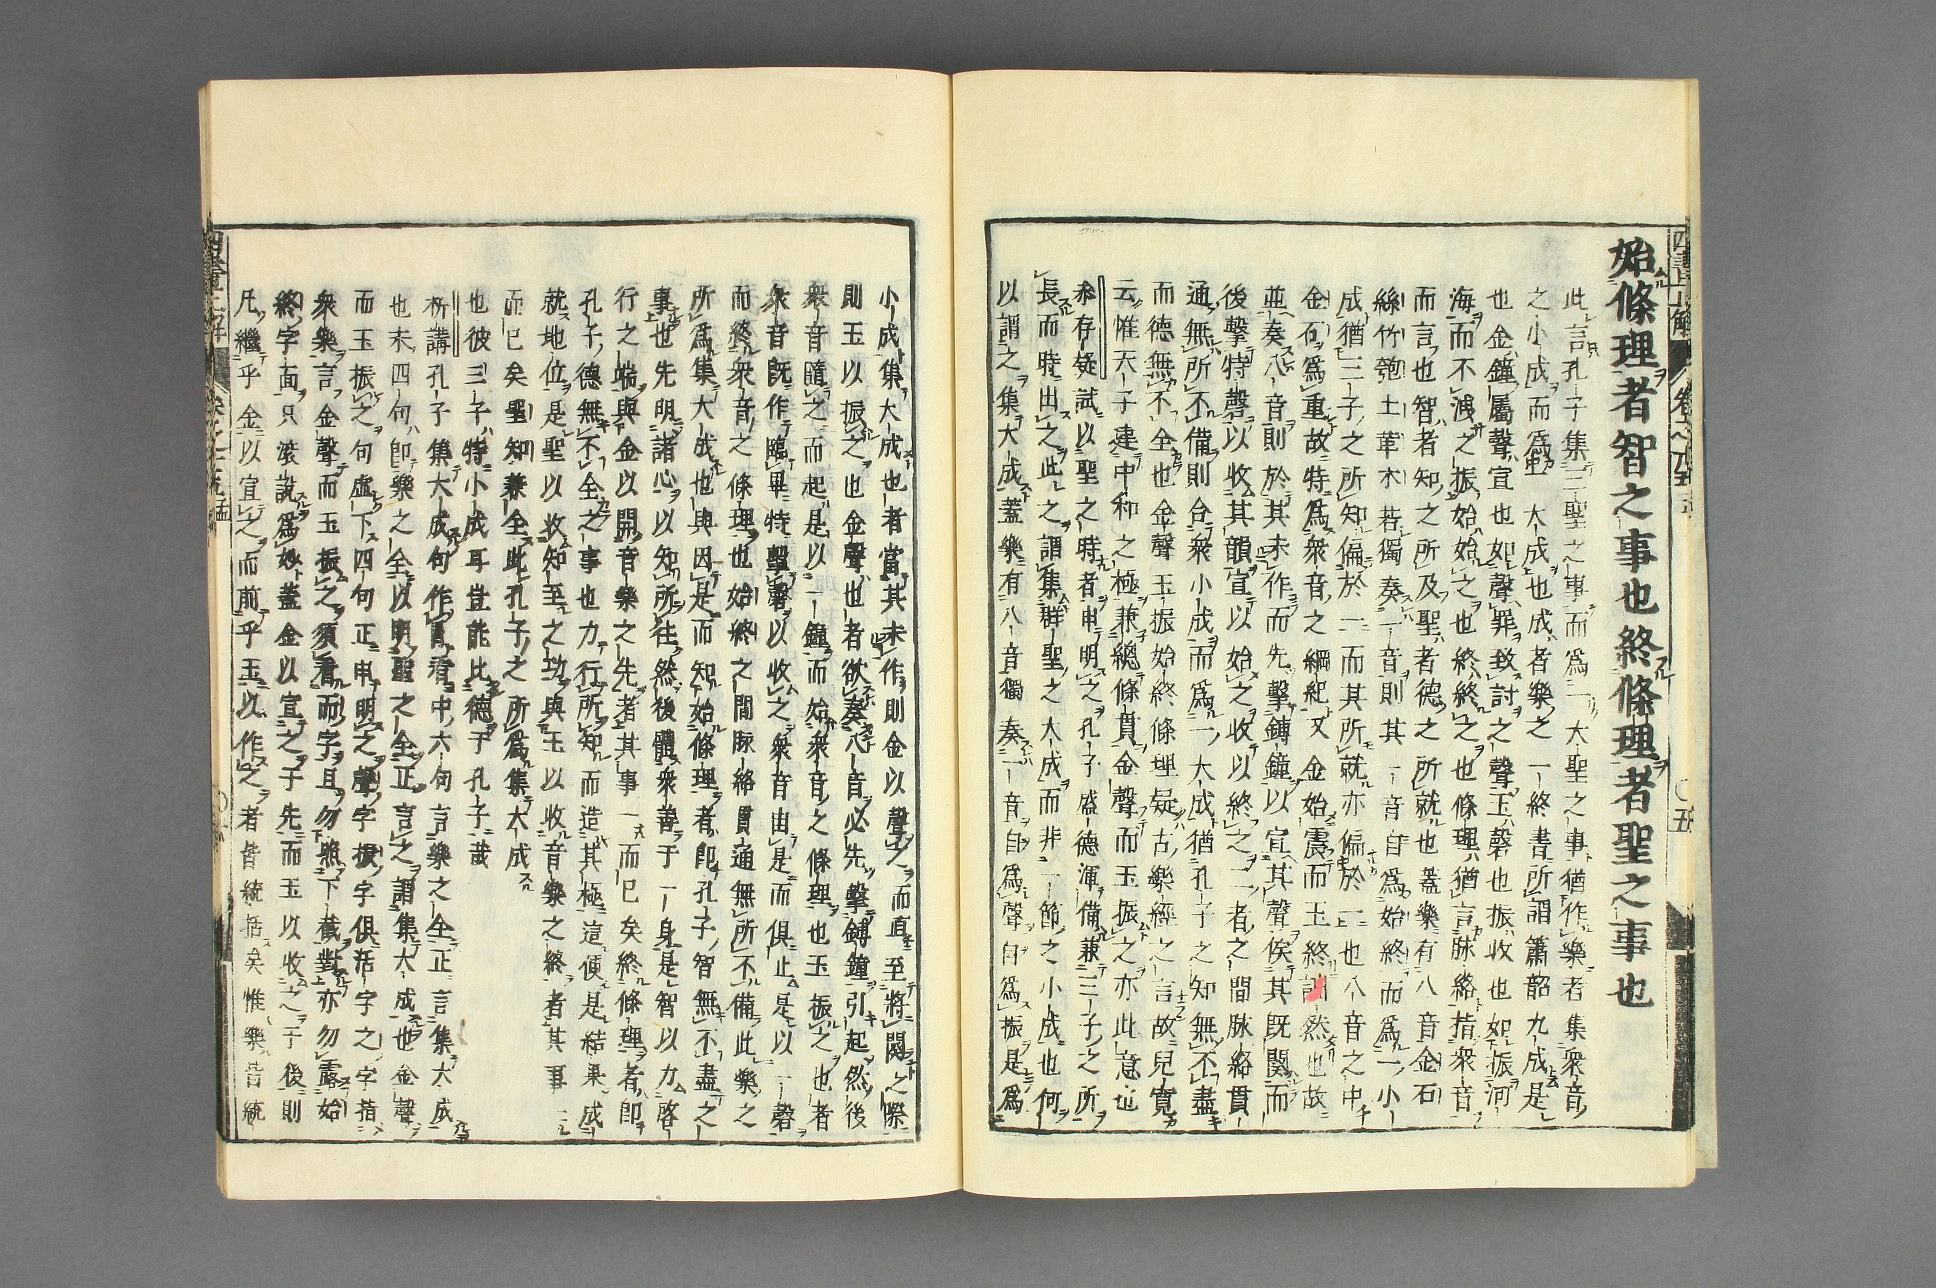 始條理者智之事也終條理者聖之事也
此言孔子集三聖之事而爲一大聖之事猶作樂者集衆音
之小成而爲一大成也成者樂之一終書所謂簫韶九成是
也金鐘屬聲宣也如聲罪致討之聲玉磬也振收也如振河
海而不洩之振始始之也終終之也條理猶言脉絡指衆音
而言也智者知之所及聖者德之所就也蓋樂有八音金石
絲竹匏土革木若獨奏一音則其一音自爲始終而爲一小
成猶三子之所知偏於一而其所就亦偏於一也八音之中
金石爲重故特爲衆音之綱紀又金始震而玉終詘然也故
並奏八音則於其未作而先擊鎛鐘以宣其聲俟其既闋而
後擊特磬以收其韻宣以始之收以終之二者之間脉絡貫
通無所不備則合衆小成而爲一大成猶孔子之知無不盡
而德無不全也金聲玉振始終條理疑古樂經之言故兒寬
云惟天子建中和之極兼總條貫金聲而玉振之亦此意也
存疑試以聖之時者申明之孔子盛德渾備兼三子之所
長而時出之此之謂集群聖之大成而非一節之小成也何
以謂之集大成蓋樂有八音獨奏一音自爲聲自爲振是爲
小成集大成也者當其未作則金以聲之而直至將闋之際
則玉以振之也金聲也者欲奏八音必先擊鎛鐘引起然後
衆音隨之而起是以一鐘而始衆音之條理也玉振之也者
衆音既作臨畢特擊磬以收之衆音由是而俱止是以一磬
而終衆音之條理也始終之間脉絡貫通無所不備此樂之
所爲集大成也與因是而知始條理者即孔子智無不盡之
事也先明諸心以知所往然後體衆善于一身是智以力啓
行之端與金以開音樂之先者其事一而已矣終條理者即
孔子德無不全之事也力行所知而造其極這便是結果成
就地位是聖以收知至之功與玉以收音樂之終者其事一
而已矣聖知兼全此孔子之所爲集大成
也彼三子特小成耳豈能比德于孔子哉
析講孔子集大成句作冒看中六句言樂之全正言集大成
也末四句即樂之全以明聖之全正言之謂集大成也金聲
而玉振之句虛下四句正申明之聲字振字俱活字之字指
衆樂言金聲而玉振之須看而字且勿照下截對亦勿露始
終字面只滚說爲妙蓋金以宣之于先而玉以收之于後則
凡繼乎金以宣之而前乎玉以作之者皆統括矣惟樂昔統